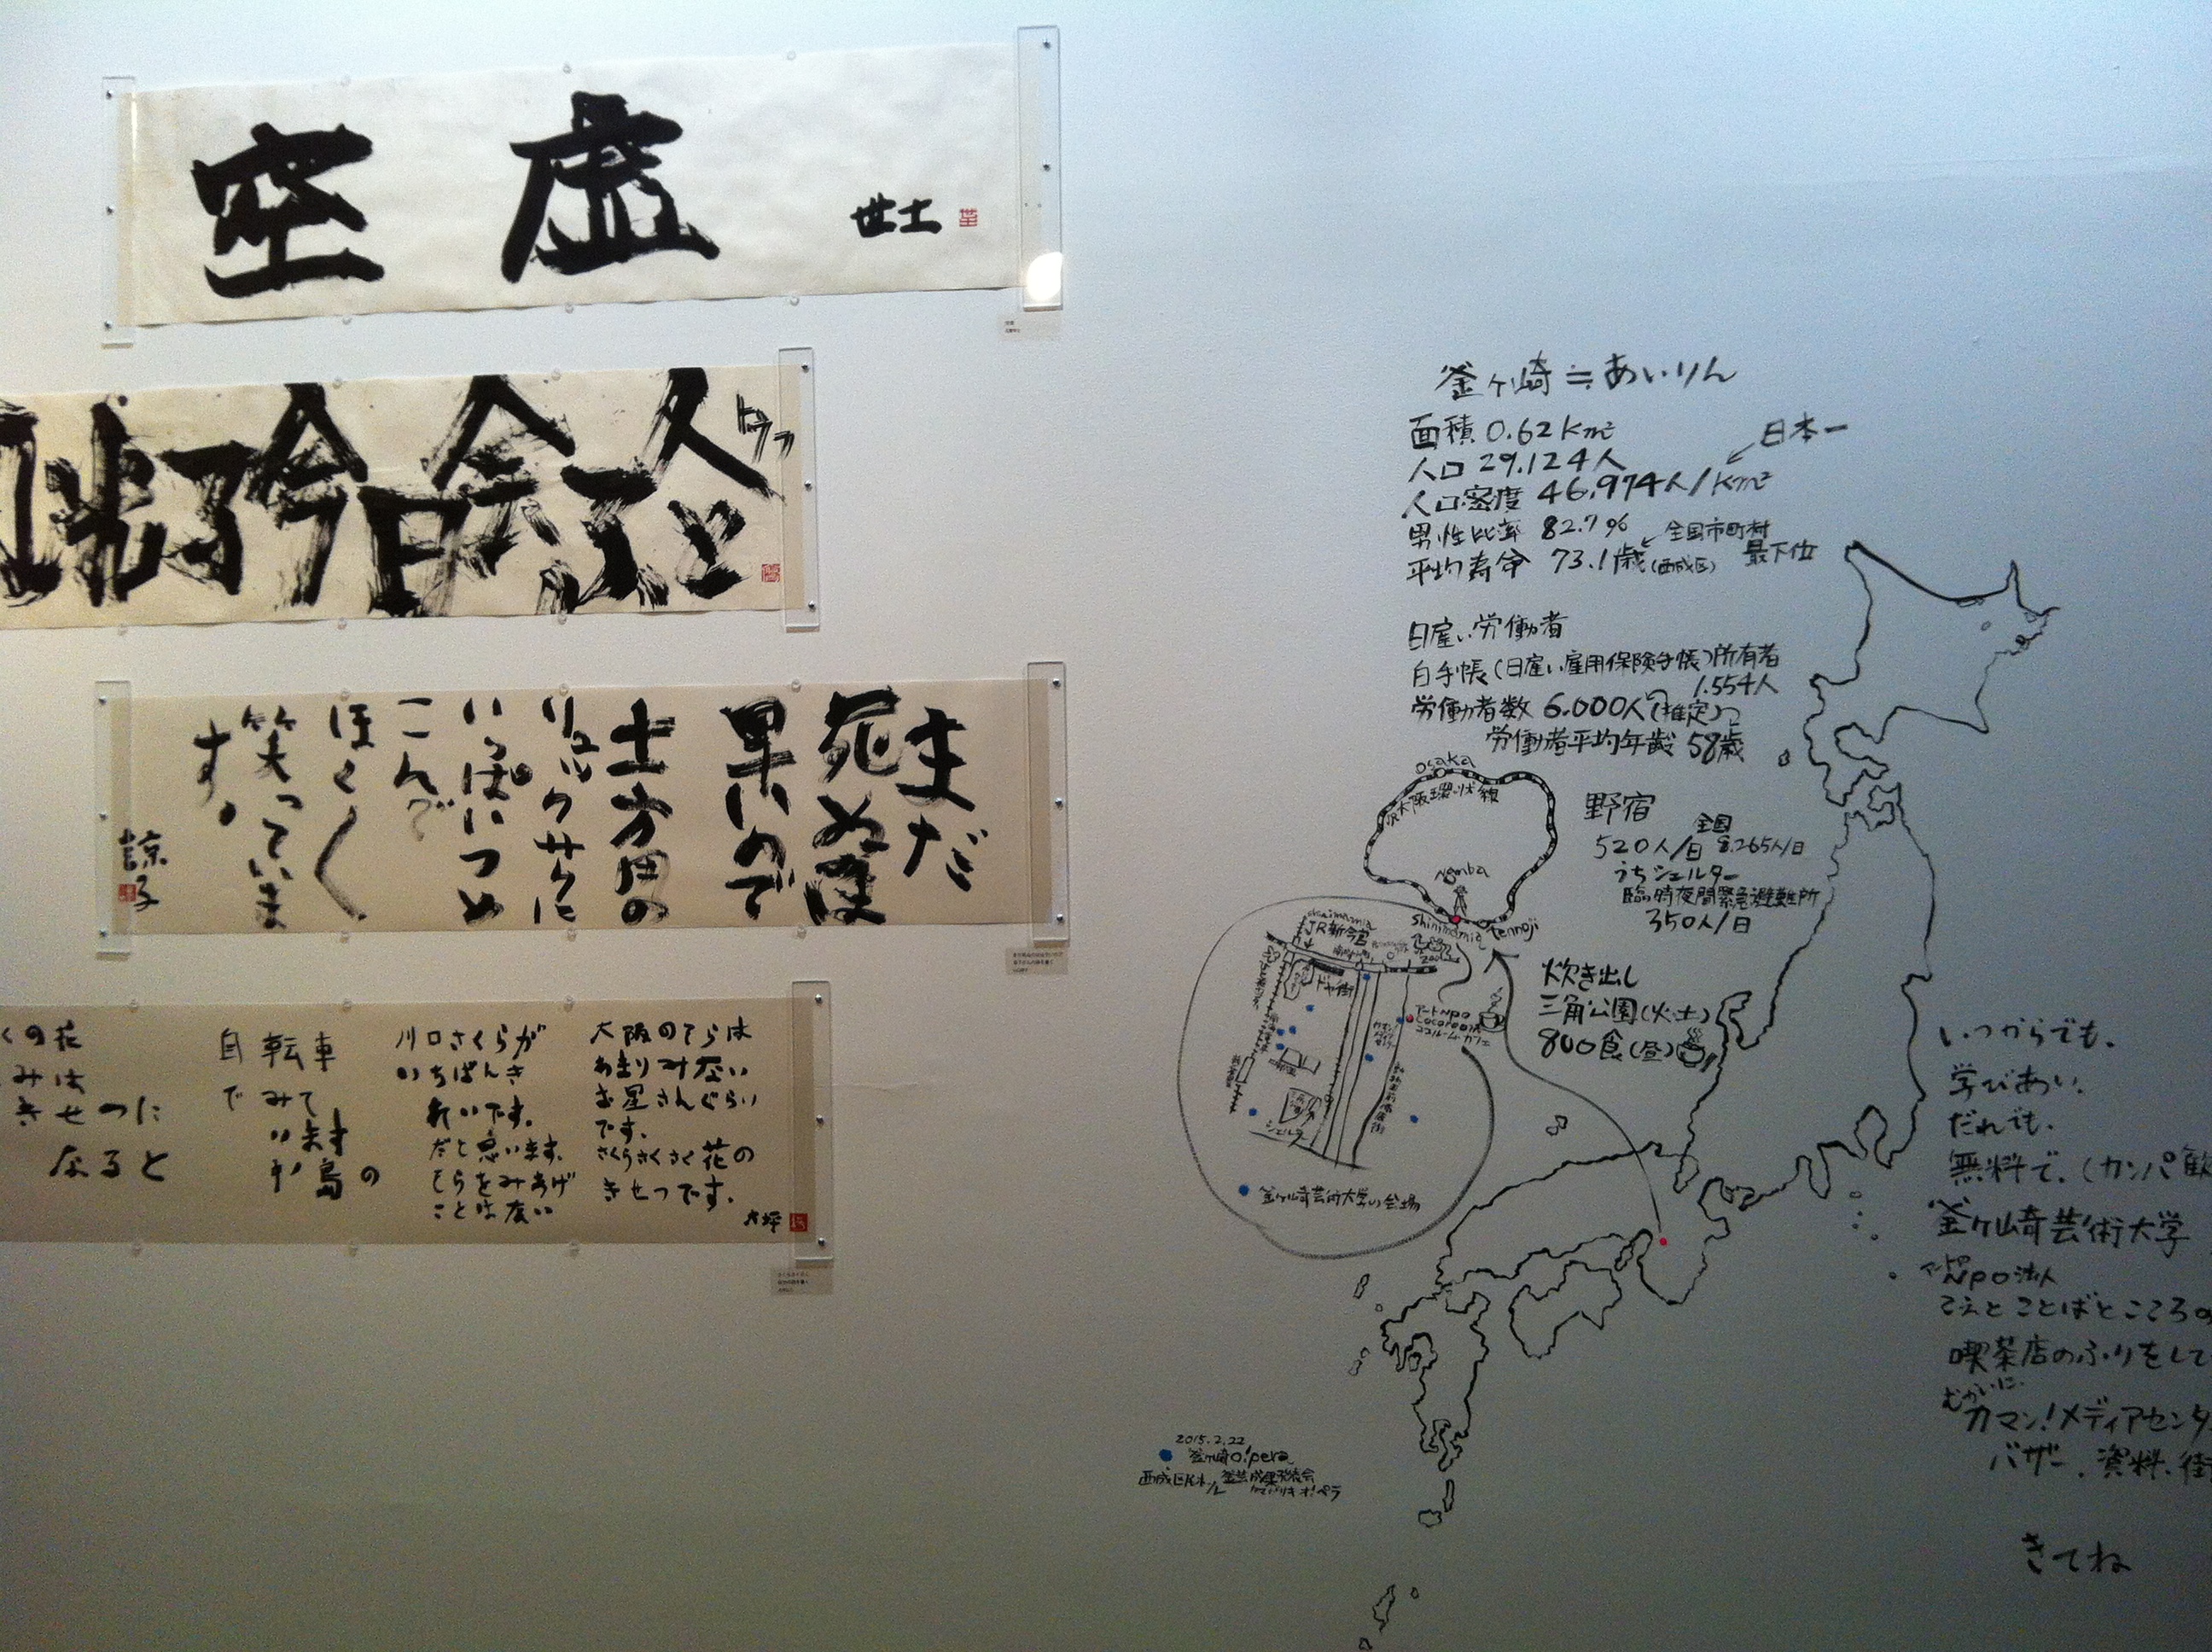 空虚
世士
まだ
死ぬ
果いので
土方用の
リュックサクに
いっぱいつめ
こんで
ほく〱
笑っていま
す。
諒子
大阪のそらは
あまりみない
お星さんぐらい
です。
さくらさくさく花の
きせつです。
大坪
川口さくらが
いちばんき
れいです。
だと思います。
そらをみあげ
ことは友い
自転車
でみて
います
中島の
くの花
みは
きせつに
なると
釜ヶ崎≒あいりん
面積 0.62km²
人口 29.124人
人口密度 46.974人/km²
日本一
男性比率 82.7%
平均寿命 73.1歳(西成区)
全国市町村
最下位
日雇い労働者
白手帳(日雇い雇用保険手帳)所有者
1.554人
労働者数 6.000人(推定)
労働者平均年齢 58歳
osaka
JR大阪環状線
Namba
Shinimamia
tennoji
野宿
520人/日
全国
8.265人/日
うちシェルター
臨時夜間緊急避難所
350人/日
炊き出し
三角公園(火・土)
800食(昼)
Shinimamia
JR新今宮
zoo
ドヤ街
アートNPO
cocoroom
ココルームカフェ
シェルター
釜ヶ崎芸術大学の会場
いつからでも、
学びあい、
だれでも、
無料で。(カンパ歓
釜ヶ崎芸術大学
アートNPO法人
こえとことばとこころの
喫茶店のふりをして
むかいに
カマン!メディアセンタ
バザー、資料、街
きてね
2015.2.22
釜ヶ崎o!pera
西成区民ホール
釜芸成果発表会
カマガサキオ!ペラ